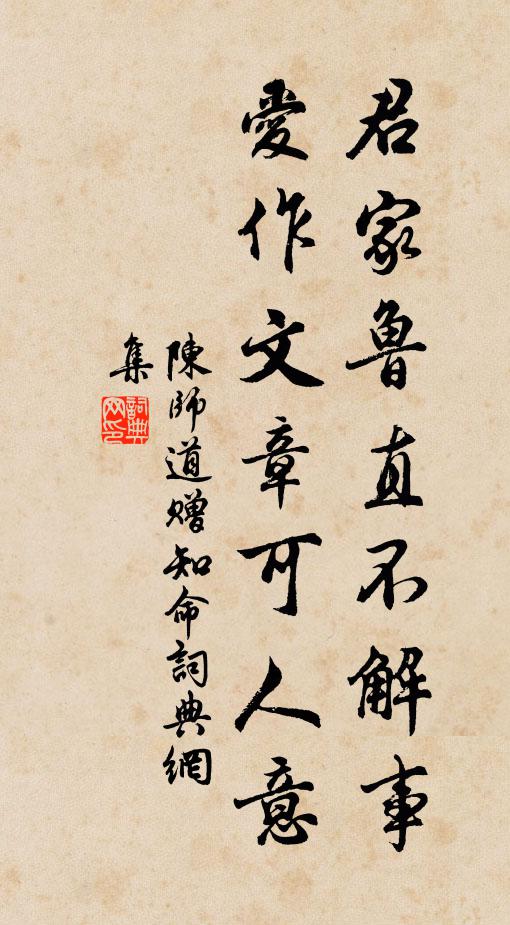 君家魯直不解事
愛作文章可人意
陳師道贈知命詞典網
集
詞典網印